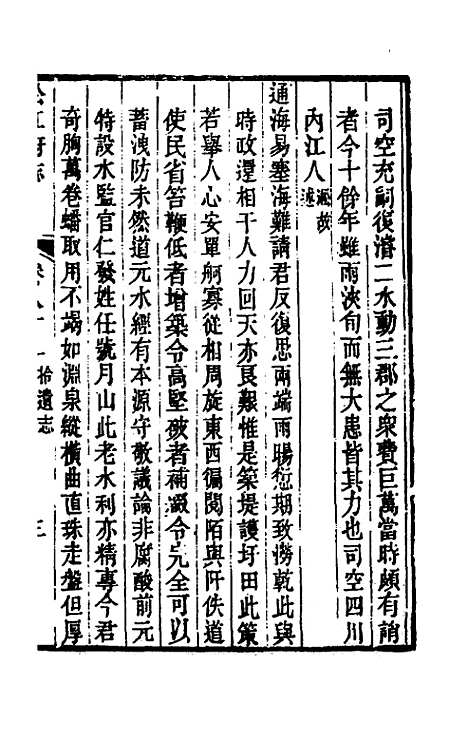 司空充嗣復濬二水動三郡之衆費巨萬當時頗有誚
者今十餘年雖雨浹旬而無大患皆其力也司空四川
內江人
通海易塞海難請君反復思兩端雨暘愆期致澇乾此與
時政還相干人力回天亦艮艱惟是築堤護圩田此策
若舉人心安單舸寡從相周旋東西徧閱陌與阡佚道
使民省笞鞭低者增築令高堅破者補綴令完全可以
蓄洩防未然道元水經有本源守敬議論非腐酸前元
特設水監官仁發姓任號月山此老水利亦精專今君
奇胸萬卷蟠取用不竭如淵泉縱橫曲直珠走盤但厚
拾遺志
三